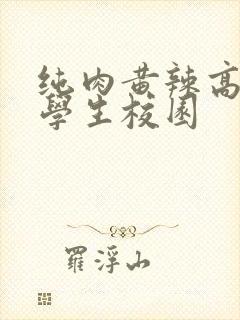 纯肉黄辣高
學生校园
羅浮山